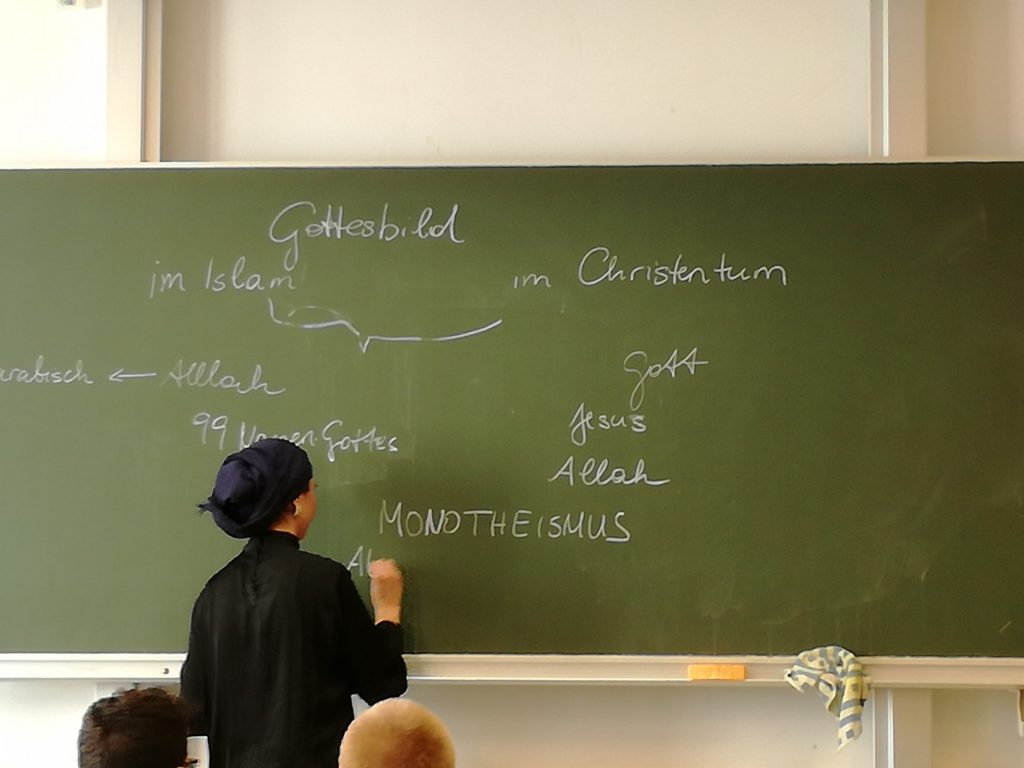 Gottesbild
im Islam
im Christentum
arabisch ← Allah
Gott
99 Namen Gottes
Jesus
Allah
MONOTHEISMUS